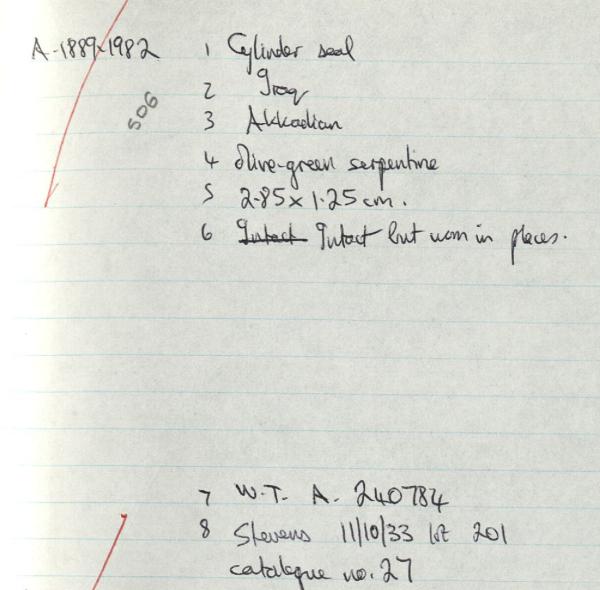 A-1889-1982 1 Cylinder seal
506
2 Iraq
3 Akkadian
4 Olive-green serpentine
5 2.85 x 1.25 cm.
6 Intact Intact but worn in places.
7 W.T. A. 240784
8 Stevens 11/10/33 lot 201
catalogue no. 27